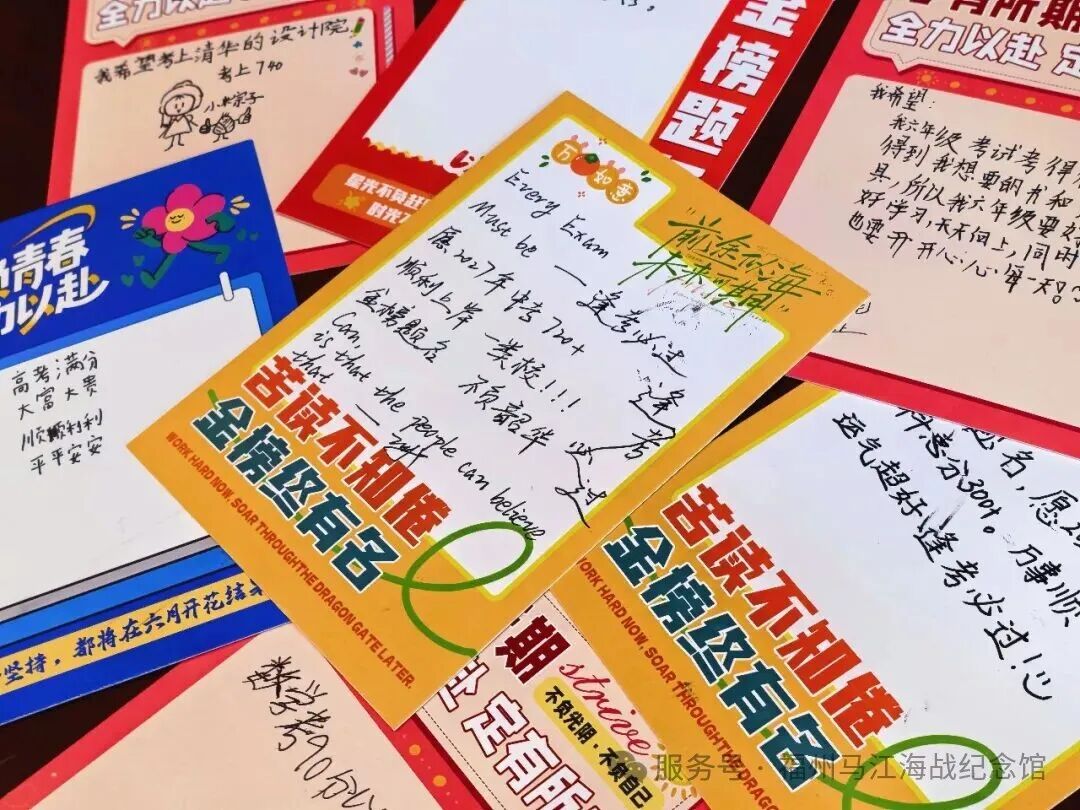 全力以赴
我希望考上清华的设计院
考上740
小米宗子
金榜题
星光不负赶
时光
全力以赴 定
我希望:
我六年级考试考得
得到我想要的书和
具,所以我六年级要好
好学习,天天向上,同时
也要开开心心每一天!
青春
力以赴
高考满分
大富大贵
顺顺利利
平平安安
坚持,都将在六月开花结
万
如意
Every Exam
Must be — 逢考必过
愿2027年中考720+
顺利上岸 一类校!!!
金榜题名 不负韶华
Can,
is that the people can believe
that
逢考必过
"前途似海
未来可期"
苦读不知倦
金榜终有名
WORK HARD NOW, SOAR THROUGH THE DRAGON GATE LATER.
名,愿
科总分300+。万事顺
运气超好,逢考必过!
苦读不知倦
金榜终有名
WORK HARD NOW, SOAR THROUGH THE DRAGON GATE LATER.
数学考90分
期
strive
不负光阴·不负自己
赴 定有所
服务号 · 福州马江海战纪念馆